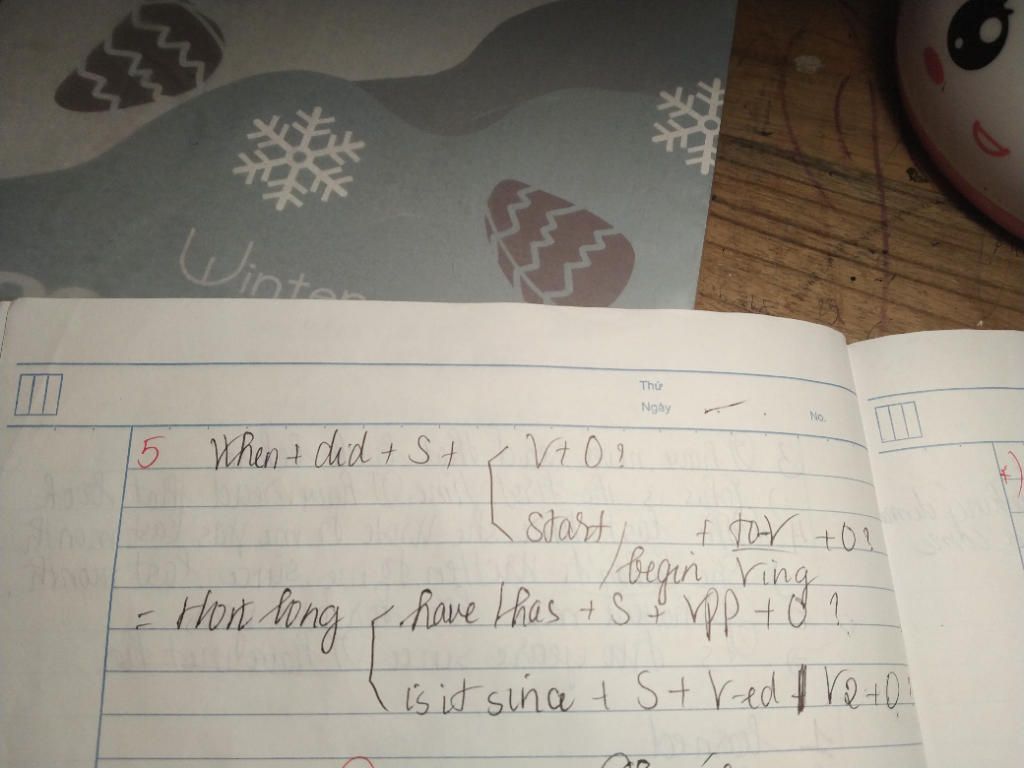 Winter
Thứ
Ngày
No.
5 When + did + S + V + O?
start / begin + to-V / Ving + O?
= How long have / has + S + Vpp + O?
is it since + S + V-ed / V2 + O?